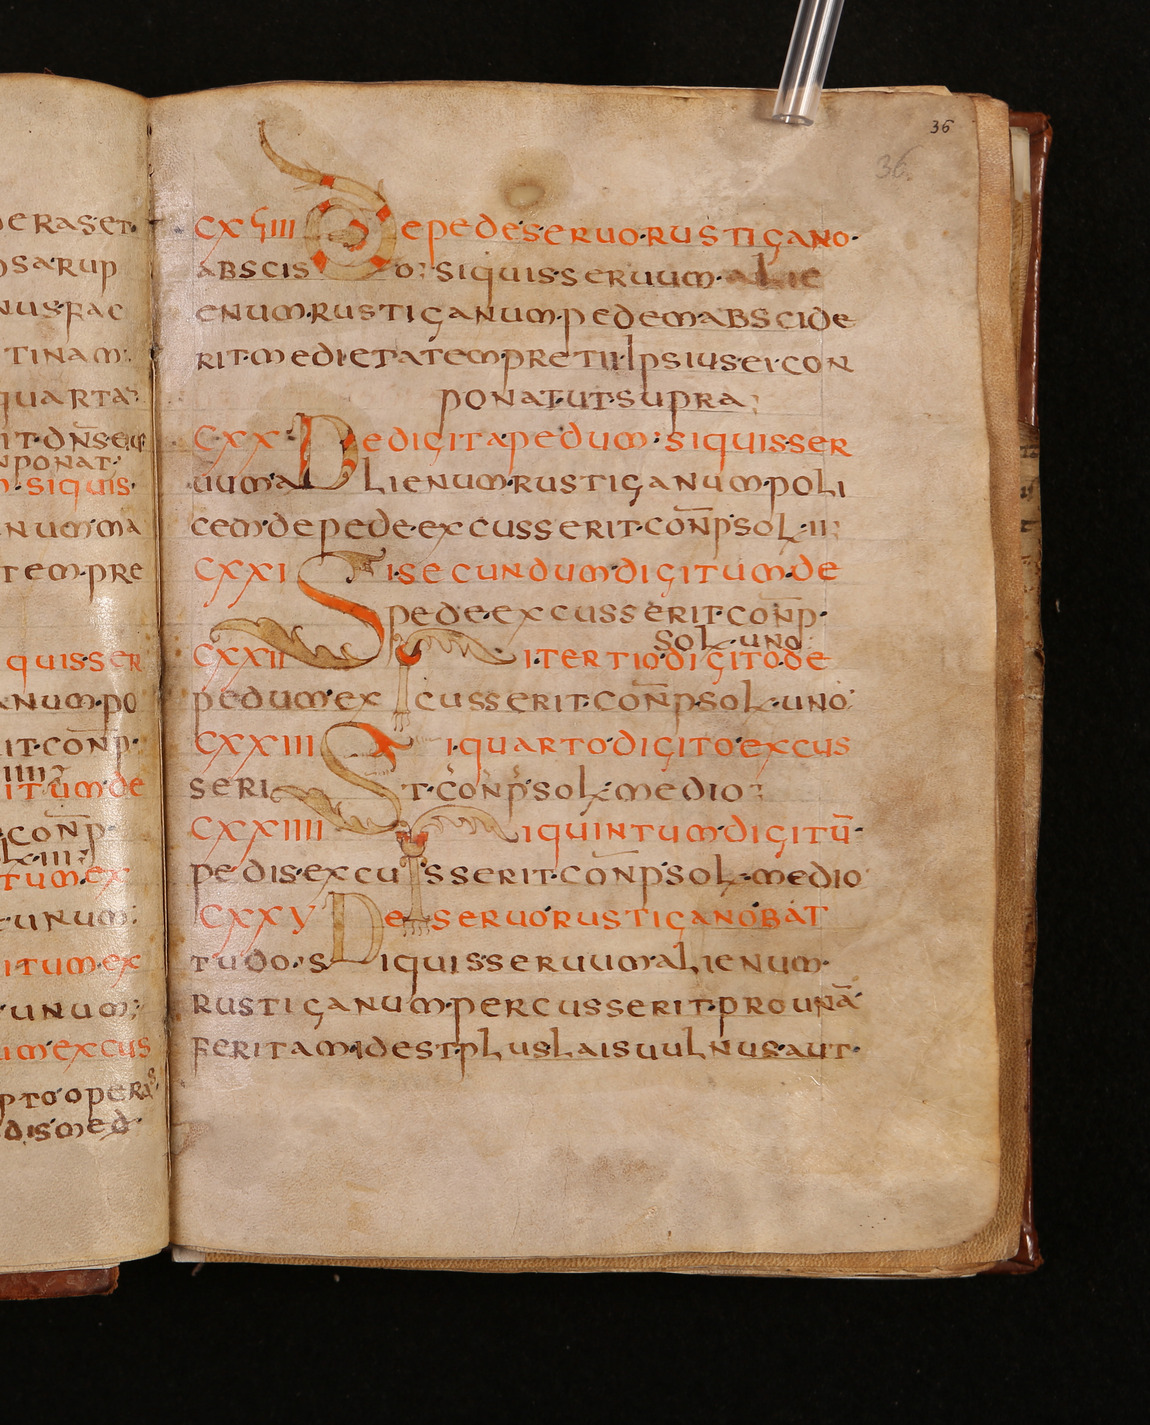 ERAS·ET·
OSA·RUP
NUS·FAC
TINAM:
QUARTA:
IT·DN̄S·EIUS
NPONAT:
M·SIQUIS·
NUM·MA
TEM·PRE
QUIS·SER
ANUM·PO
IT·CON̄P·
IIII:
ITUM·DE
CON̄P·
SOL·III:
TUM·EX
UNUM:
ITUM·EX
UNUM:
UM·EXCUS
PTO·OPERAS
DIS·MED
36
36.
CXVIIII DE PEDE SERUO·RUSTICANO·
ABSCISO: SIQUIS SERUUM·ALIE
ENUM·RUSTICANUM·PEDEM·ABSCIDE
RIT·MEDIETATEM·PRETII·IPSIUS·EI·CON
PONAT·UT·SUPRA:
CXX· DE DIGITA·PEDUM: SIQUIS·SER
UUM·ALIENUM·RUSTICANUM·POLI
CEM·DE PEDE·EXCUSSERIT·CON̄P·SOL·II:
CXXI SI·SECUNDUM·DIGITUM·DE
PEDE·EXCUSSERIT·CON̄P·
SOL·UNO:
CXXII SI·TERTIO·DIGITO·DE
PEDUM·EXCUSSERIT·CON̄P·SOL·UNO:
CXXIII SI·QUARTO·DIGITO·EXCUS
SERIT·CON̄P·SOL·MEDIO:
CXXIIII SI QUINTUM·DIGITŪ·
PEDIS·EXCUSSERIT·CON̄P·SOL·MEDIO
CXXV DE SERUO·RUSTICANO·BAT
TUDO·SIQUIS SERUUM·ALIENUM·
RUSTICANUM·PERCUSSERIT·PRO UNĀ
FERITAM·IDEST·PLUSLAIS UULNUS·AUT·